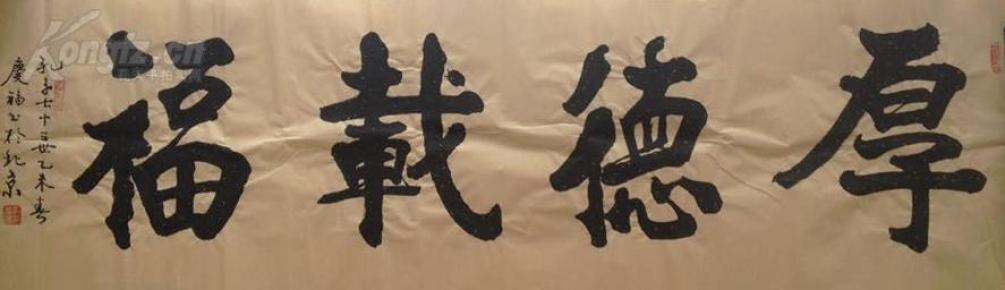 厚德載福
孔子七十三世乙未春
慶福書於北京
Kongfz.cn